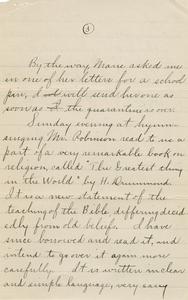 3
By the way, Marie asked me
in one of her letters for a school
pin, I will send her one as
soon as the quarantine is over.
Sunday evening at hymn-
singing Mr. Robinson read to us a
part of a very remarkable book on
religion, called "The Greatest thing
in the World" by H. Drummond.
It is a new statement of the
teaching of the Bible, differing decid-
edly from old beliefs. I have
since borrowed and read it, and
intend to go over it again more
carefully. It is written in clear
and simple language, very easy